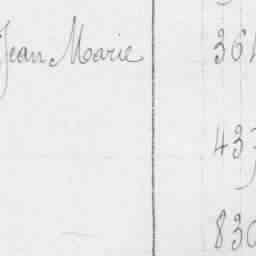 Jean Marie 364
433
830